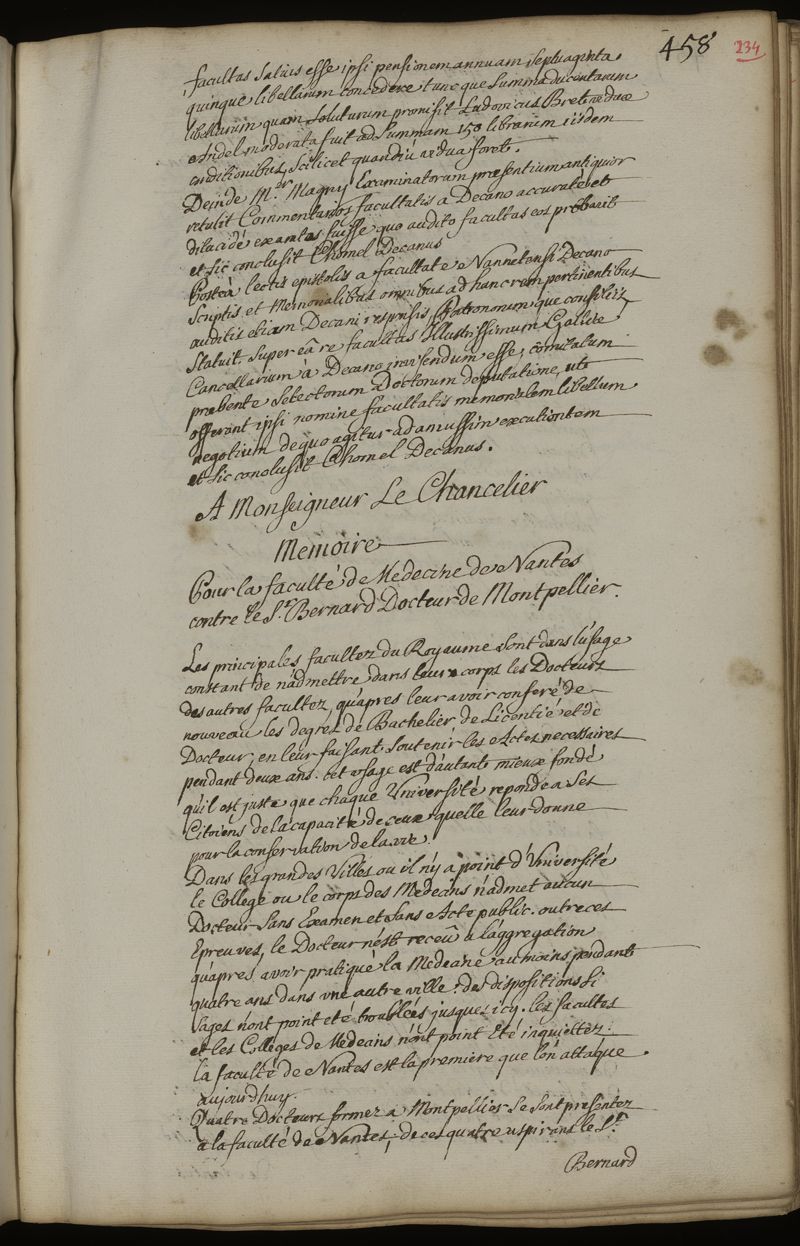 458
234
facultas Satius esse ipsi pensionem annuam Septuaginta
quinque libellarum concedere tuncque Summa ducentarum
libellarum quam Soluturum promisit Ludovicus Bret
Andel moderata fuit ad Summam 150 librarum iisdem
conditionibus, Scilicet quandiù ardua foret.
Deinde M.er Magny Examinatorum præsentium antiquior
retulit Commentarios facultatis a Decano accurate et
dilucidè exaratos fuisse quo audito facultas eos probavit
et Sic conclusit Chomel Decanus
Posteà lectis epistolis a facultate Nannetensi Decano
Scriptis et Memorialibus omnibus ad hanc rem pertinentibus
auditis etiam Decani responsis, Patronorumque consiliis
Statuit Super eâ re facultas Illustrissimum Galliæ
Cancellarium à Decano invisendum esse, comitatum
præbente Selectorum Doctorum deputatione, ut
offerant ipsi nomine facultatis memorialem libellum
negotium de quo agitur ad amussim executionem
et Sic conclusit Chomel Decanus.
A Monseigneur Le Chancelier
Memoire
Pour la faculté de Medecine de Nantes
contre le S.r Bernard Docteur de Montpellier.
Les principales facultez du Royaume Sont dans l'usage
constant de n'admettre dans leurs corps les Docteurs
des autres facultez, qu'apres leur avoir conferé de
nouveau les degrez de Bachelier de Licentié et de
Docteur, en leur faisant Soutenir les Actes necessaires
pendant deux ans. cet usage est d'autant mieux fondé
qu'il est juste que chaque Université reponde a Ses
Citoiens de la capacité de ceux quelle leur donne
pour la conservation de la vie.
Dans les grandes Villes ou il n'y a point d'Université
le College ou le corps des Medecins n'admet aucun
Docteur Sans Examen et Sans Acte public. outre ces
Epreuves, le Docteur n'est receû a l'aggregation
qu'apres avoir pratiqué la Medecine au moins pendant
quatre ans dans une autre ville. des dispositions Si
Sages n'ont point eté troublées jusques icy. les facultes
et les Colleges de Medecins n'ont point Eté inquiettez.
la faculté de Nantes est la premiere que l'on attaque
aujourd'huy.
Quatre Docteurs formez a Montpellier Se Sont presentez
a la faculté de Nantes, de ces quatre aspirans le S.r
Bernard